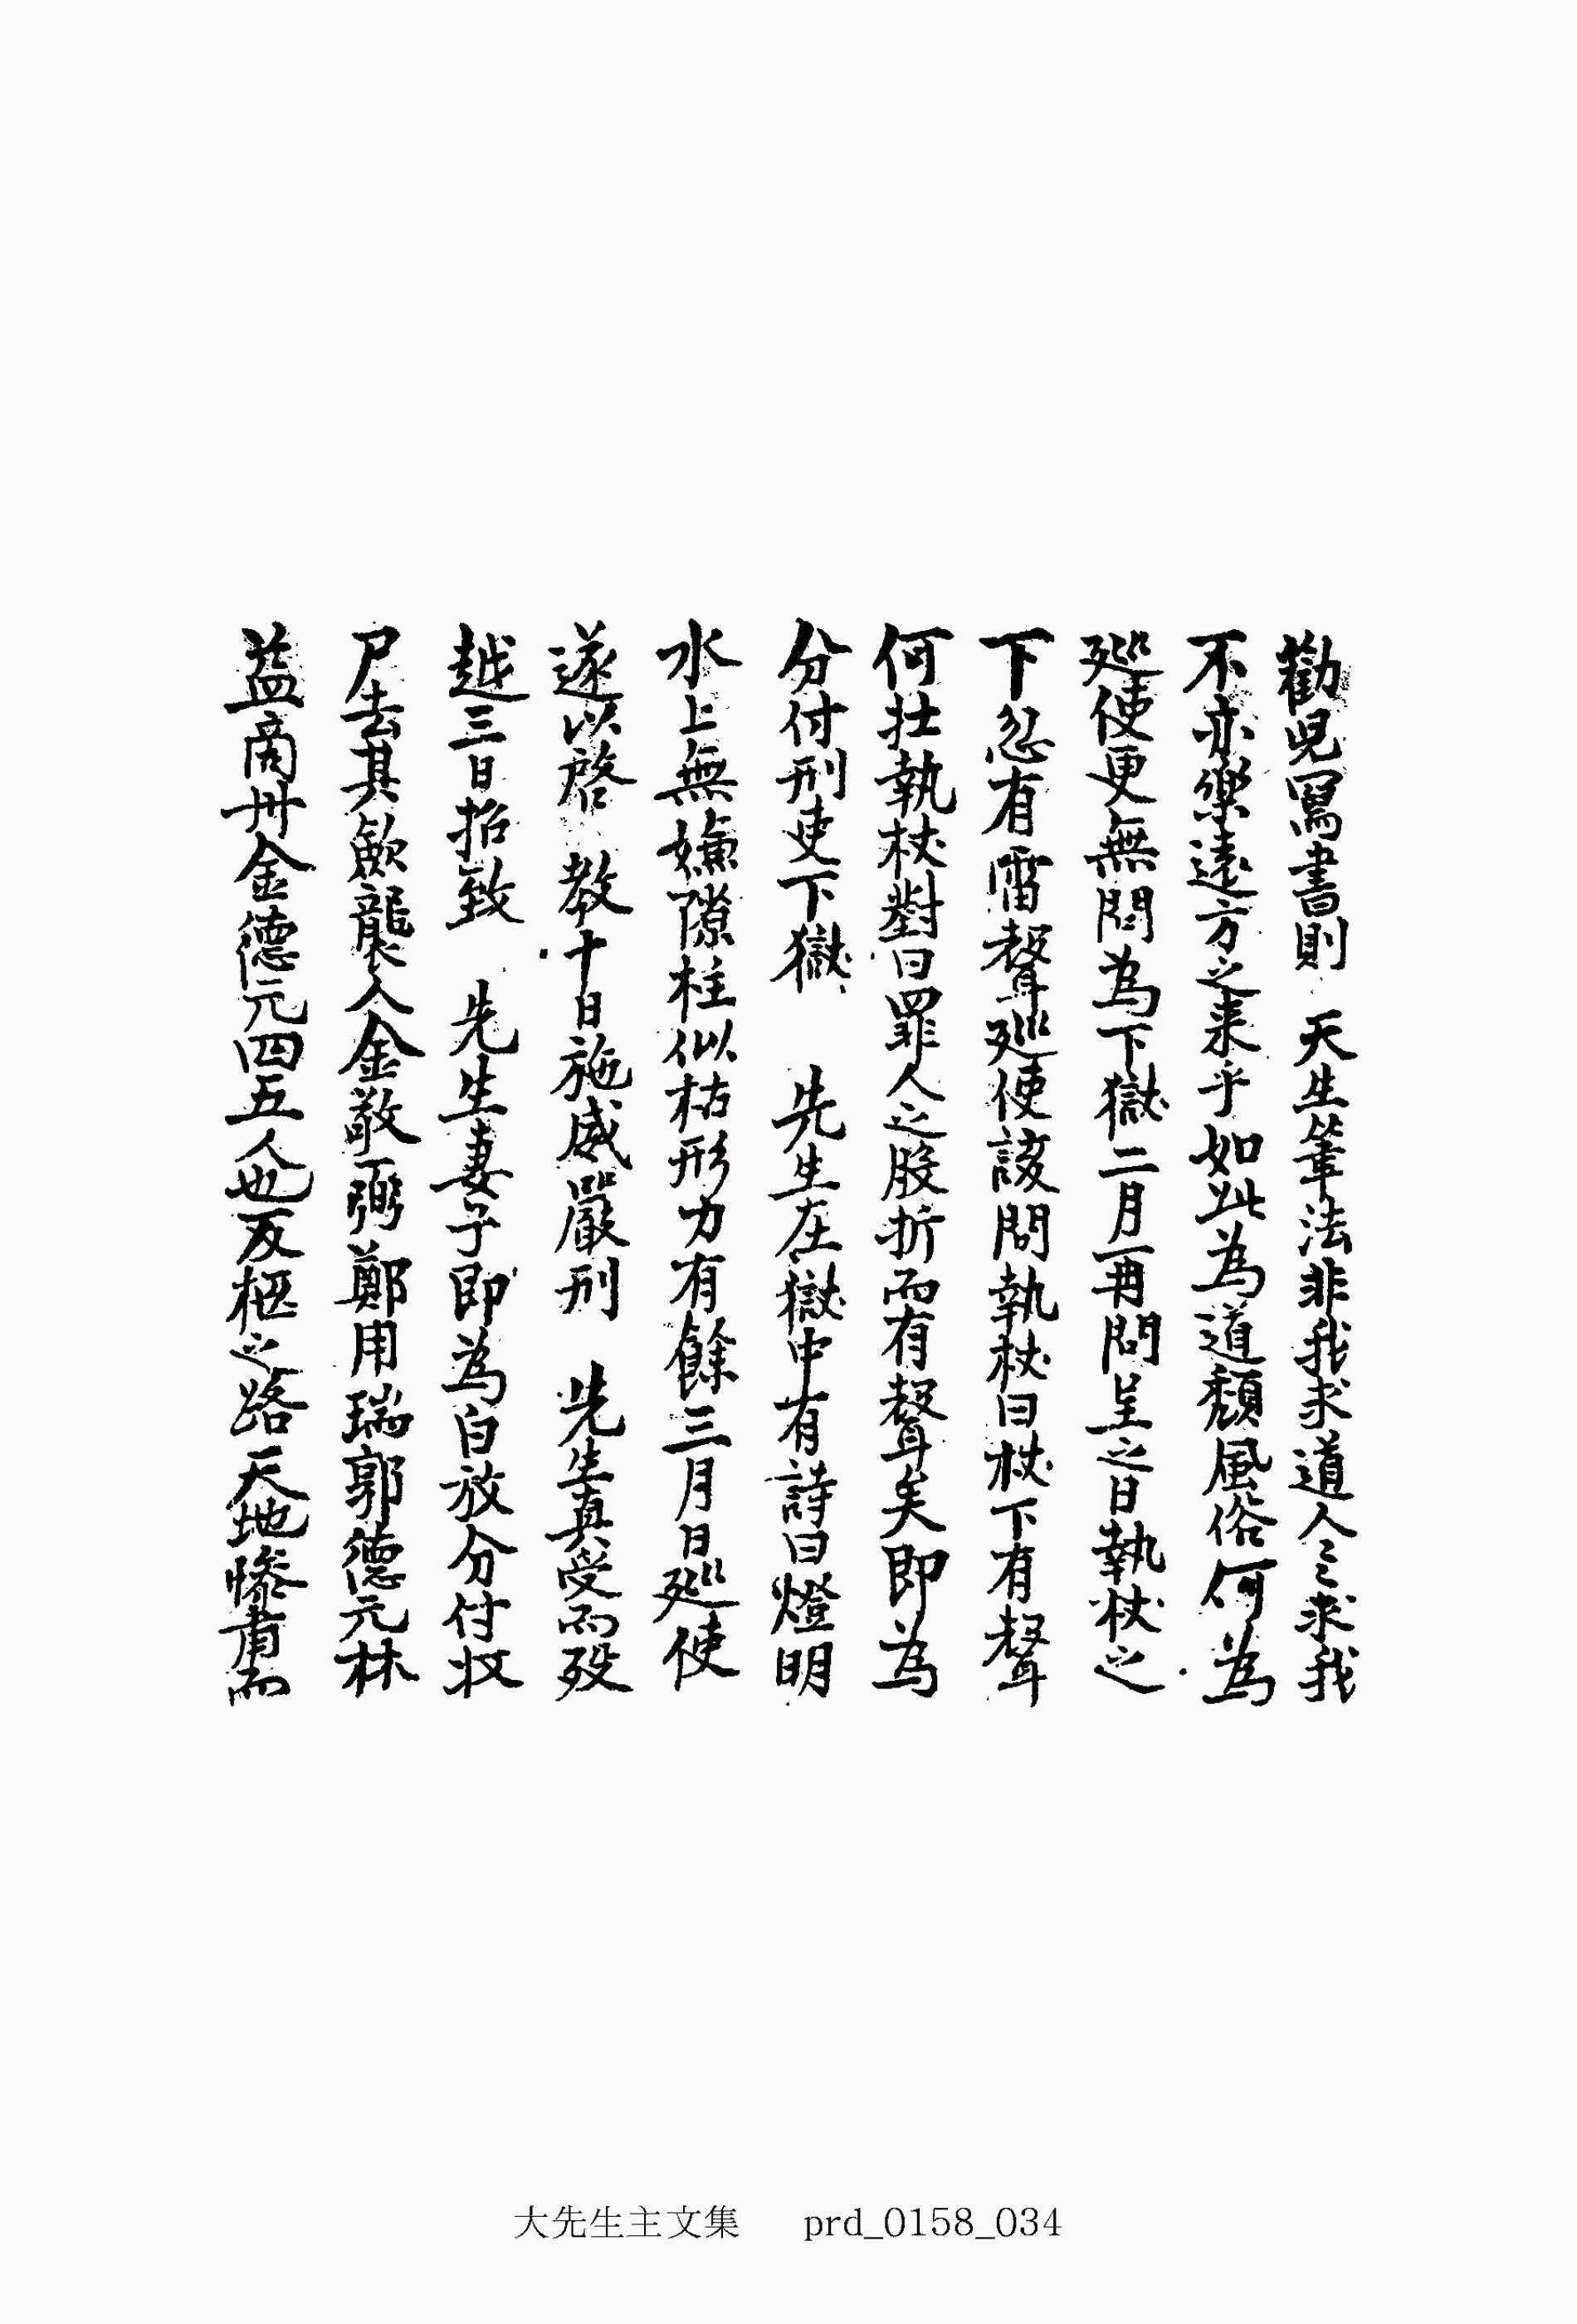 勸兒寫書則 天生筆法非我求道人〻求我
不亦樂遠方之来乎如此為道頹風俗何為
廵使更無問為下獄二月再問呈之日執杖之
下忽有雷聲廵使該問執杖曰杖下有聲
何壯執杖對曰罪人之股折而有聲矣即為
分付刑吏下獄 先生在獄中有詩曰燈明
水上無嫌隙柱似枯形力有餘三月日廵使
遂以啓 教十日施威嚴刑 先生真受而歿
越三日招致 先生妻子即為白放分付收
尸去其歛襲人金敬弼鄭用瑞郭德元林
益商州金德元四五人也返柩之路天地慘肅而
大先生主文集 prd_0158_034